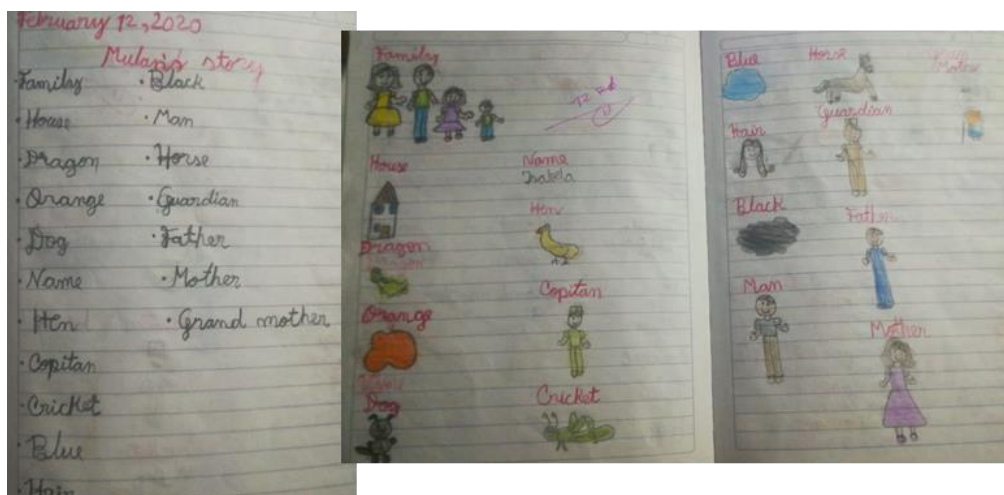 February 12, 2020
Mulan's story
· Family
· House
· Dragon
· Orange
· Dog
· Name
· Hen
· Copitan
· Cricket
· Blue
· Hair
· Black
· Man
· Horse
· Guardian
· Father
· Mother
· Grand mother
Family
House
Dragon
Orange
Dog
Name
Isabela
Hen
Copitan
Cricket
Blue
Hair
Black
Man
Horse
Guardian
Father
Mother
Mother